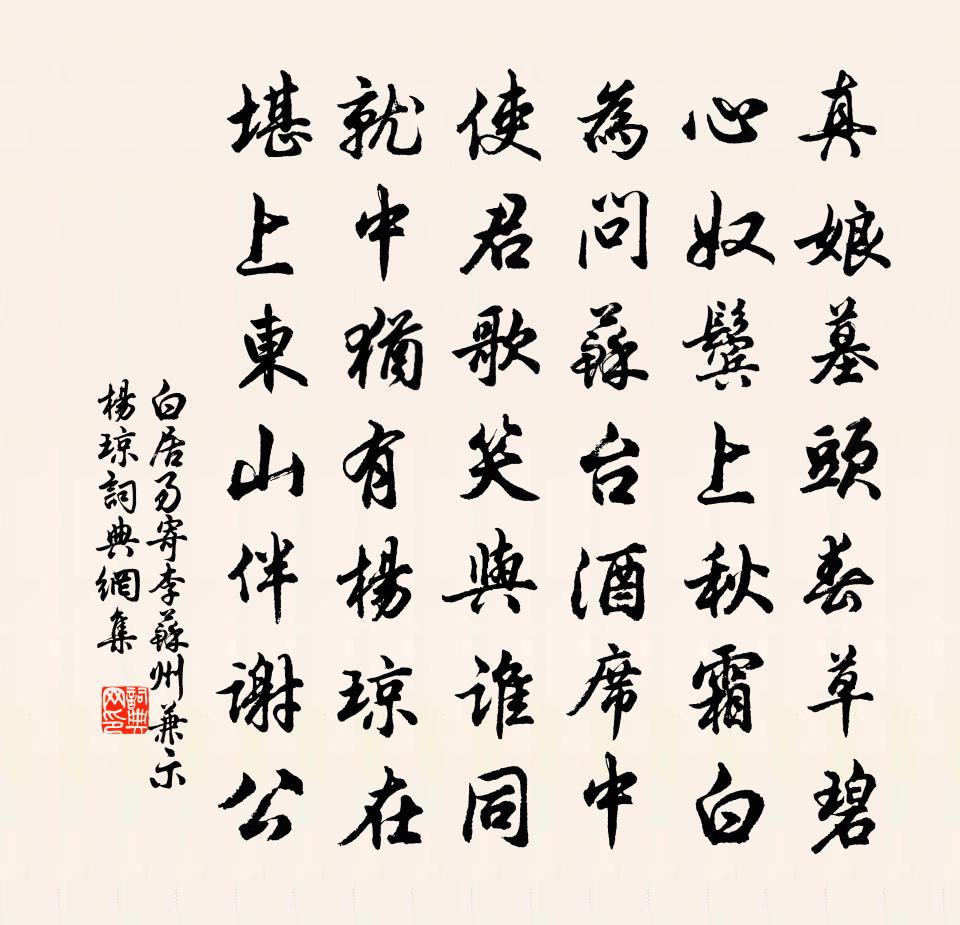 真娘墓頭春草碧
心奴鬓上秋霜白
為問蘇台酒席中
使君歌笑與誰同
就中猶有楊琼在
堪上東山伴謝公
白居易寄李蘇州兼示
楊琼詞典網集
詞典
网印